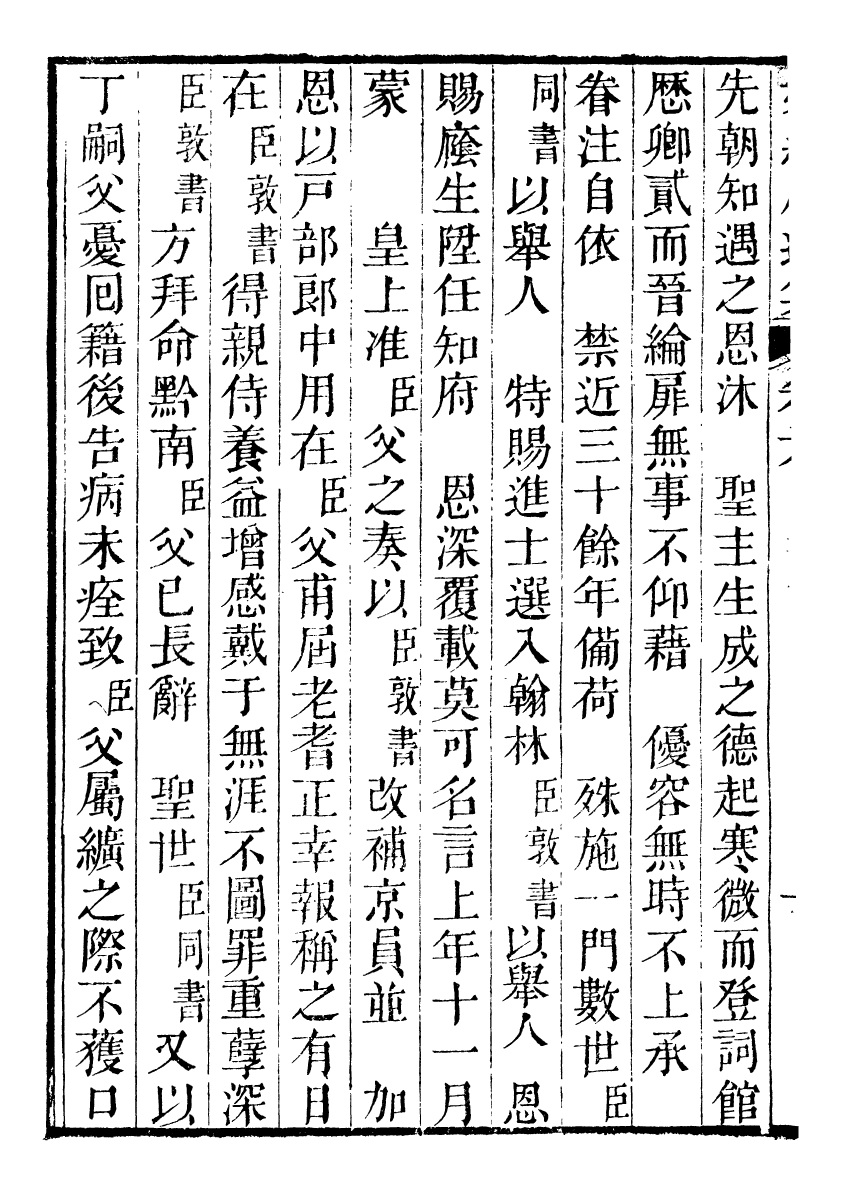 先朝知遇之恩沐　聖主生成之德起寒微而登詞館
歷卿貳而晉綸扉無事不仰藉　優容無時不上承
眷注自依　禁近三十餘年備荷　殊施一門數世臣
同書以舉人　特賜進士選入翰林臣敦書以舉人　恩
賜廕生陞任知府　恩深覆載莫可名言上年十一月
蒙　　皇上准臣父之奏以臣敦書改補京員並　加
恩以戸部郎中用在臣父甫屆老耆正幸報稱之有日
在臣敦書得親侍養益增感戴于無涯不圖罪重孽深
臣敦書方拜命黔南臣父已長辭　聖世臣同書又以
丁嗣父憂回籍後告病未痊致臣父屬纊之際不獲口